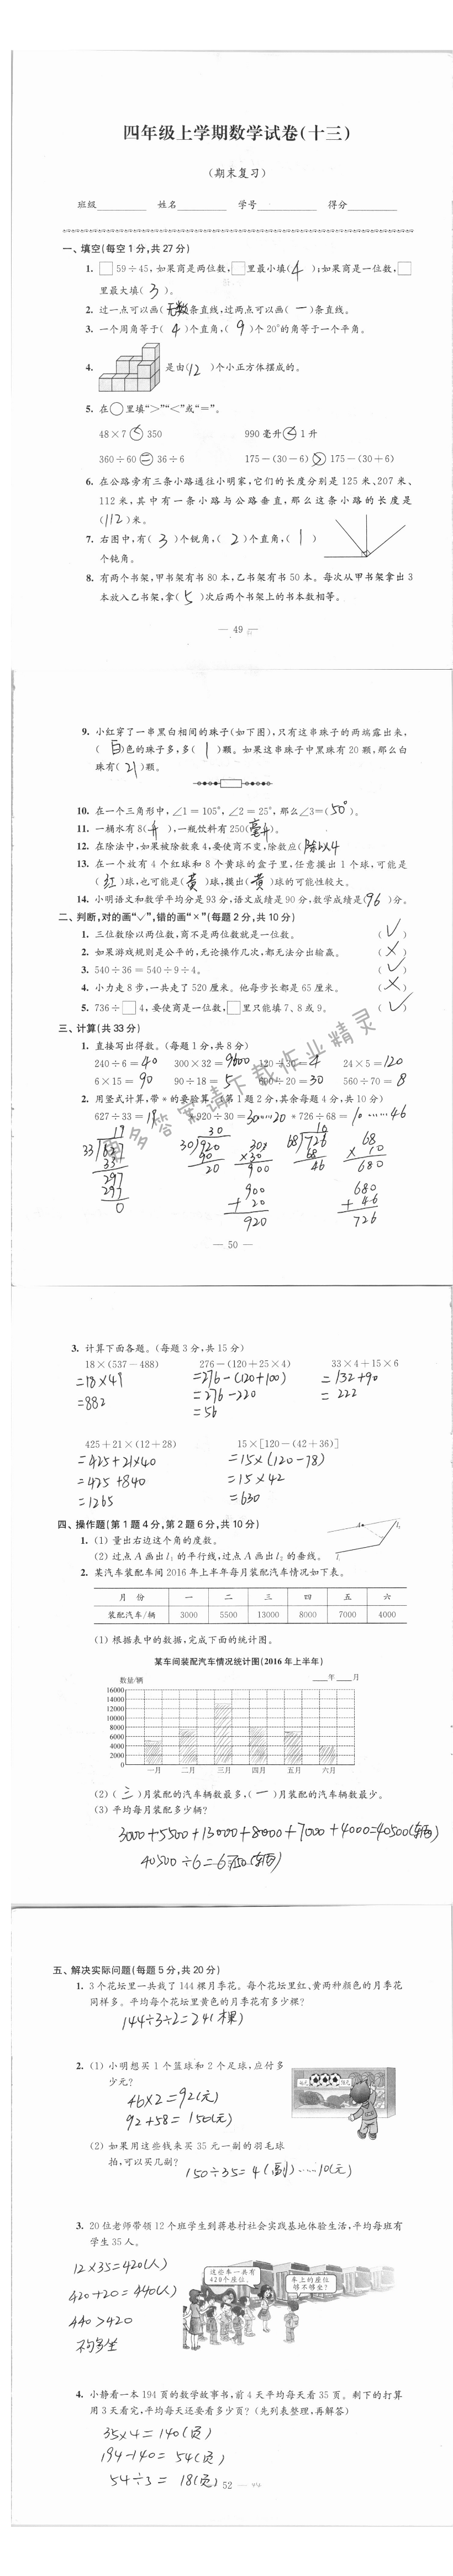 四年级上学期数学试卷(十三)
(期末复习)
班级 姓名 学号 得分
一、填空(每空1分,共27分)
1. □59÷45,如果商是两位数,□里最小填(4);如果商是一位数,□
里最大填(3)。
2. 过一点可以画(无数)条直线,过两点可以画(一)条直线。
3. 一个周角等于(4)个直角,(9)个20°的角等于一个平角。
4. 是由(12)个小正方体摆成的。
5. 在○里填“>”“<”或“=”。
48×7<350 990毫升<1升
360÷60=36÷6 175-(30-6)>175-(30+6)
6. 在公路旁有三条小路通往小明家,它们的长度分别是125米、207米、
112米,其中有一条小路与公路垂直,那么这条小路的长度是
(112)米。
7. 右图中,有(3)个锐角,(2)个直角,(1)
个钝角。
8. 有两个书架,甲书架有书80本,乙书架有书50本。每次从甲书架拿出3
本放入乙书架,拿(5)次后两个书架上的书本数相等。
— 49 —
9. 小红穿了一串黑白相间的珠子(如下图),只有这串珠子的两端露出来,
(白)色的珠子多,多(1)颗。如果这串珠子中黑珠有20颗,那么白
珠有(21)颗。
10. 在一个三角形中,∠1=105°,∠2=25°,那么∠3=(50°)。
11. 一桶水有8(升),一瓶饮料有250(毫升)。
12. 在除法中,如果被除数乘4,要使商不变,除数应(除以4
13. 在一个放有4个红球和8个黄球的盒子里,任意摸出1个球,可能是
(红)球,也可能是(黄)球,摸出(黄)球的可能性较大。
14. 小明语文和数学平均分是93分,语文成绩是90分,数学成绩是(96)分。
二、判断,对的画“✓”,错的画“×”(每题2分,共10分)
1. 三位数除以两位数,商不是两位数就是一位数。 (✓)
2. 如果游戏规则是公平的,无论操作几次,都无法分出输赢。 (×)
3. 540÷36=540÷9÷4。 (✓)
4. 小力走8步,一共走了520厘米。他每步长都是65厘米。 (×)
5. 736÷□4,要使商是一位数,□里只能填7、8或9。 (✓)
三、计算(共33分)
1. 直接写出得数。(每题1分,共8分)
240÷6=40 300×32=9600 120÷30=4 24×5=120
6×15=90 90÷18=5 600÷20=30 560÷70=8
2. 用竖式计算,带*的要验算。(第1题2分,其余每题4分,共10分)
627÷33=19 *920÷30=30……20 *726÷68=10……46
19 30 10
33 627 30 920 30 68 726 68
33 90 ×30 68 × 10
297 20 900 46 680
297 900 680
0 + 20 + 46
920 726
— 50 —
3. 计算下面各题。(每题3分,共15分)
18×(537-488) 276-(120+25×4) 33×4+15×6
=18×49 =276-(120+100) =132+90
=882 =276-220 =222
=56
425+21×(12+28) 15×[120-(42+36)]
=425+21×40 =15×(120-78)
=425+840 =15×42
=1265 =630
四、操作题(第1题4分,第2题6分,共10分)
1. (1) 量出右边这个角的度数。
(2) 过点A画出l₁的平行线,过点A画出l₂的垂线。
2. 某汽车装配车间2016年上半年每月装配汽车情况如下表。
月 份 一 二 三 四 五 六
装配汽车/辆 3000 5500 13000 8000 7000 4000
(1) 根据表中的数据,完成下面的统计图。
某车间装配汽车情况统计图(2016年上半年)
数量/辆 年 月
16000
14000
12000
10000
8000
6000
4000
2000
0
一月 二月 三月 四月 五月 六月
(2) (三)月装配的汽车辆数最多,(一)月装配的汽车辆数最少。
(3) 平均每月装配多少辆?
3000+5500+13000+8000+7000+4000=40500(辆)
40500÷6=6750(辆)
五、解决实际问题(每题5分,共20分)
1. 3个花坛里一共栽了144棵月季花。每个花坛里红、黄两种颜色的月季花
同样多。平均每个花坛里黄色的月季花有多少棵?
144÷3÷2=24(棵)
2. (1) 小明想买1个篮球和2个足球,应付多
少元?
46×2=92(元)
92+58=150(元)
(2) 如果用这些钱来买35元一副的羽毛球
拍,可以买几副?
150÷35=4(副)……10(元)
3. 20位老师带领12个班学生到蒋巷村社会实践基地体验生活,平均每班有
学生35人。
12×35=420(人)
420+20=440(人)
440>420
不够坐
这些车一共有
420个座位。
车上的座位
够不够坐?
4. 小静看一本194页的数学故事书,前4天平均每天看35页。剩下的打算
用3天看完,平均每天还要看多少页?(先列表整理,再解答)
35×4=140(页)
194-140=54(页)
54÷3=18(页)
52 —
更多答案请下载作业精灵